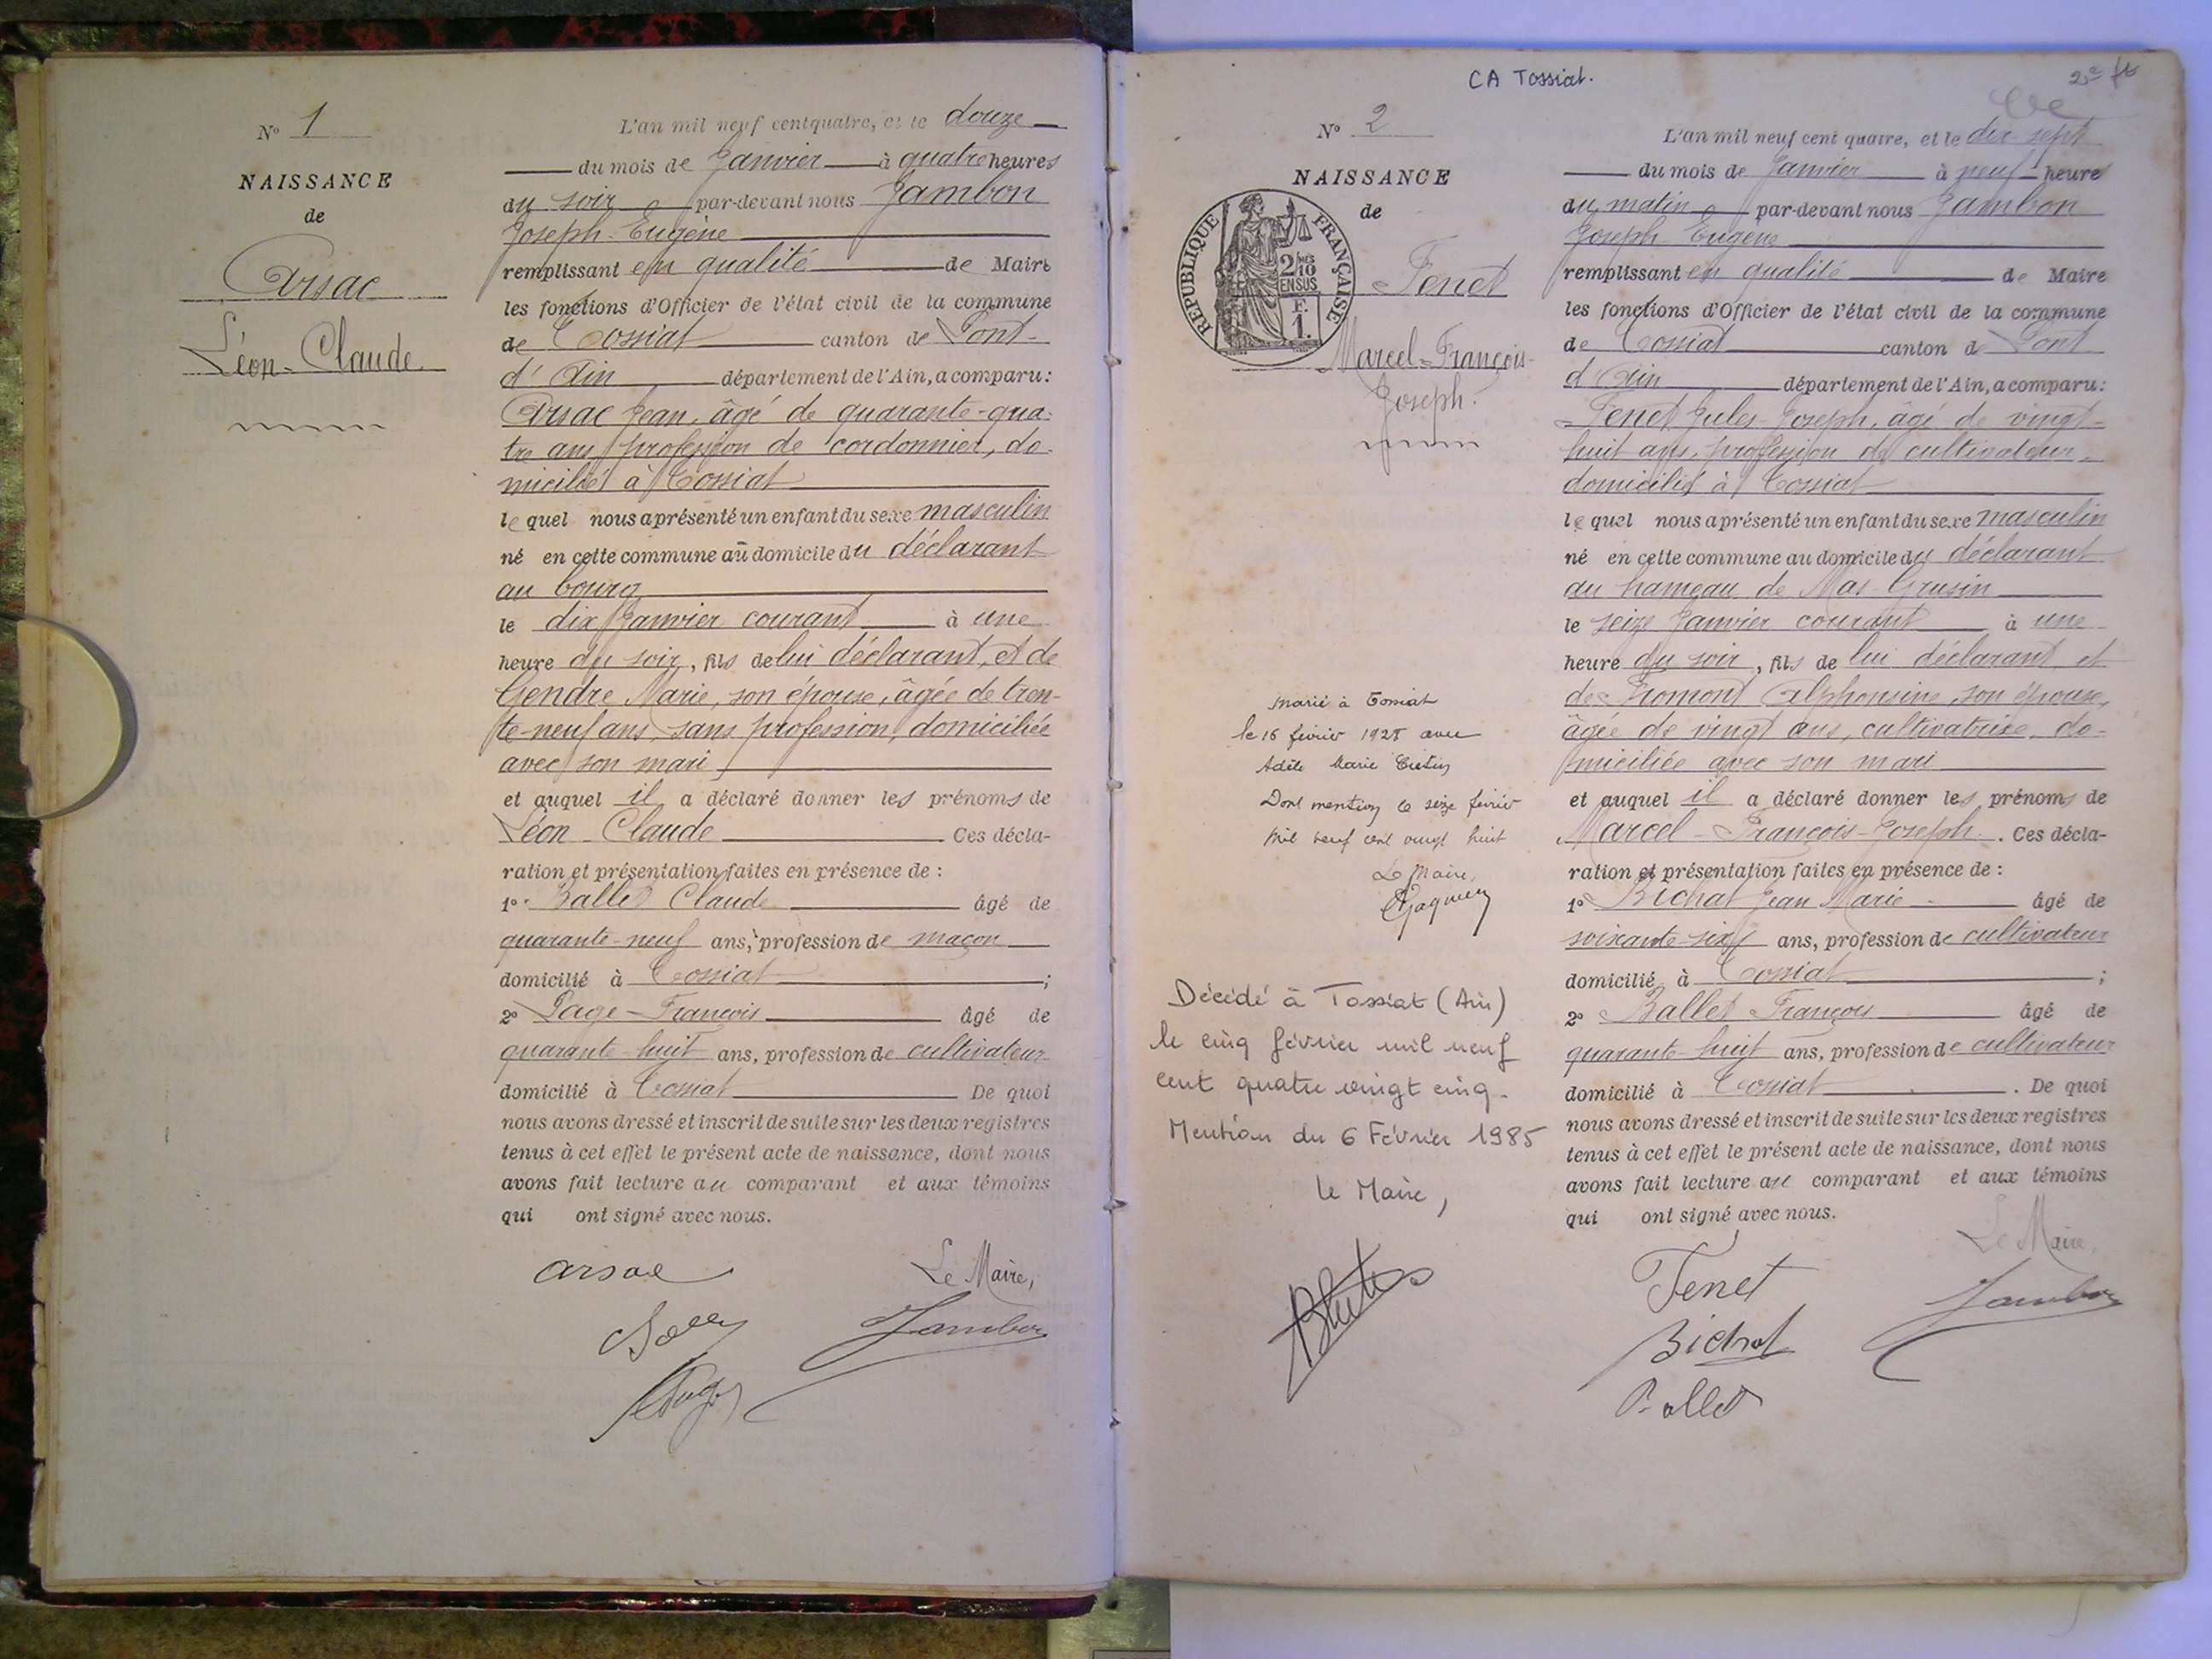 N° 1
NAISSANCE
de
Arsac
Léon-Claude
L'an mil neuf cent quatre, et le douze
du mois de Janvier à quatre heures
du soir par-devant nous Jambon
Joseph-Eugène
remplissant en qualité de Maire
les fonctions d'Officier de l'état civil de la commune
de Tossiat canton de Pont-
d'Ain département de l'Ain, a comparu:
Arsac Jean, âgé de quarante-qua-
tre ans, profession de cordonnier, do-
micilié à Tossiat
lequel nous a présenté un enfant du sexe masculin
né en cette commune au domicile du déclarant
au bourg
le dix Janvier courant à une
heure du soir, fils de lui déclarant, et de
Gendre Marie, son épouse, âgée de tren-
te-neuf ans, sans profession, domiciliée
avec son mari
et auquel il a déclaré donner les prénoms de
Léon-Claude. Ces décla-
ration et présentation faites en présence de :
1° Ballet Claude âgé de
quarante-neuf ans, profession de maçon
domicilié à Tossiat ;
2° Page François âgé de
quarante-huit ans, profession de cultivateur
domicilié à Tossiat De quoi
nous avons dressé et inscrit de suite sur les deux registres
tenus à cet effet le présent acte de naissance, dont nous
avons fait lecture au comparant et aux témoins
qui ont signé avec nous.
Arsac
Le Maire,
Jambon
CA Tossiat.
N° 2
NAISSANCE
de
RÉPUBLIQUE FRANÇAISE
2/10 EN SUS
F.
1.
Tenet
Marcel-François-
Joseph.
marié à Tossiat
le 16 février 1928 avec
Adèle Marie
Dont mention le seize février
mil neuf cent vingt huit
Le Maire,
Décédé à Tossiat (Ain)
le cinq février mil neuf
cent quatre vingt cinq.
Mention du 6 Février 1985
Le Maire,
L'an mil neuf cent quatre, et le dix sept
du mois de Janvier à neuf heure
du matin par-devant nous Jambon
Joseph Eugène
remplissant en qualité de Maire
les fonctions d'Officier de l'état civil de la commune
de Tossiat canton de Pont
d'Ain département de l'Ain, a comparu:
Tenet Jules-Joseph, âgé de vingt-
huit ans, profession de cultivateur,
domicilié à Tossiat
lequel nous a présenté un enfant du sexe masculin
né en cette commune au domicile du déclarant
au hameau de Mas-Grusin
le seize Janvier courant à une
heure du soir, fils de lui déclarant et
de Fromont Alphonsine, son épouse,
âgée de vingt ans, cultivatrice, do-
miciliée avec son mari
et auquel il a déclaré donner les prénoms de
Marcel-François-Joseph. Ces décla-
ration et présentation faites en présence de :
1° Bichat Jean Marie âgé de
soixante-six ans, profession de cultivateur
domicilié à Tossiat ;
2° Ballet François âgé de
quarante-huit ans, profession de cultivateur
domicilié à Tossiat. De quoi
nous avons dressé et inscrit de suite sur les deux registres
tenus à cet effet le présent acte de naissance, dont nous
avons fait lecture au comparant et aux témoins
qui ont signé avec nous.
Le Maire,
Tenet
Jambon
Bichat
Ballet